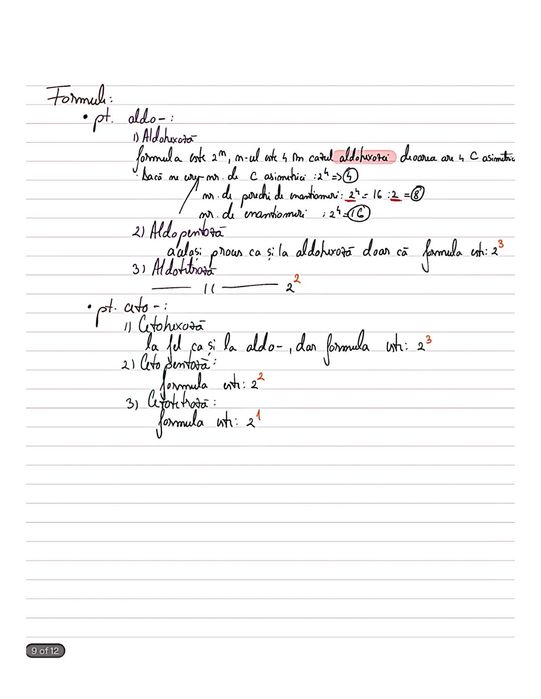 Formule:
• pt. aldo-:
1) Aldohexoză
formula este 2ⁿ, n-ul este 4 în cazul aldohexozei deoarece are 4 C asimetrici
Dacă ne cere - nr. de C asimetrici : 2⁴ => 4
nr. de perechi de enantiomeri: 2⁴ = 16 : 2 = 8
nr. de enantiomeri : 2⁴ = 16
2) Aldopentoză
același proces ca și la aldohexoză doar că formula este: 2³
3) Aldotetroză
—— 11 —— 2²
• pt. ceto-:
1) Cetohexoză
la fel ca și la aldo-, dar formula este: 2³
2) Cetopentoză:
formula este: 2²
3) Cetotetroză:
formula este: 2¹
9 of 12